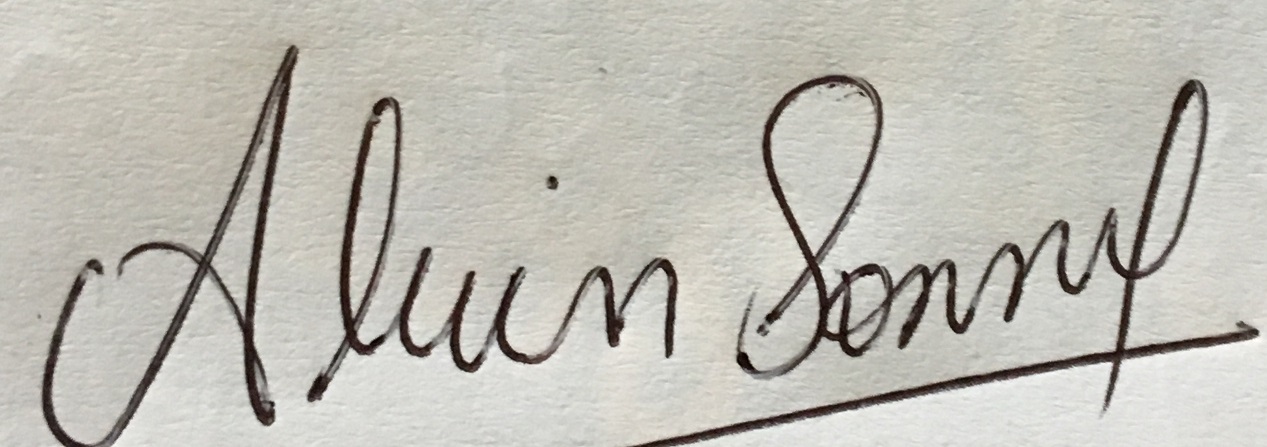 Alvin Sonny